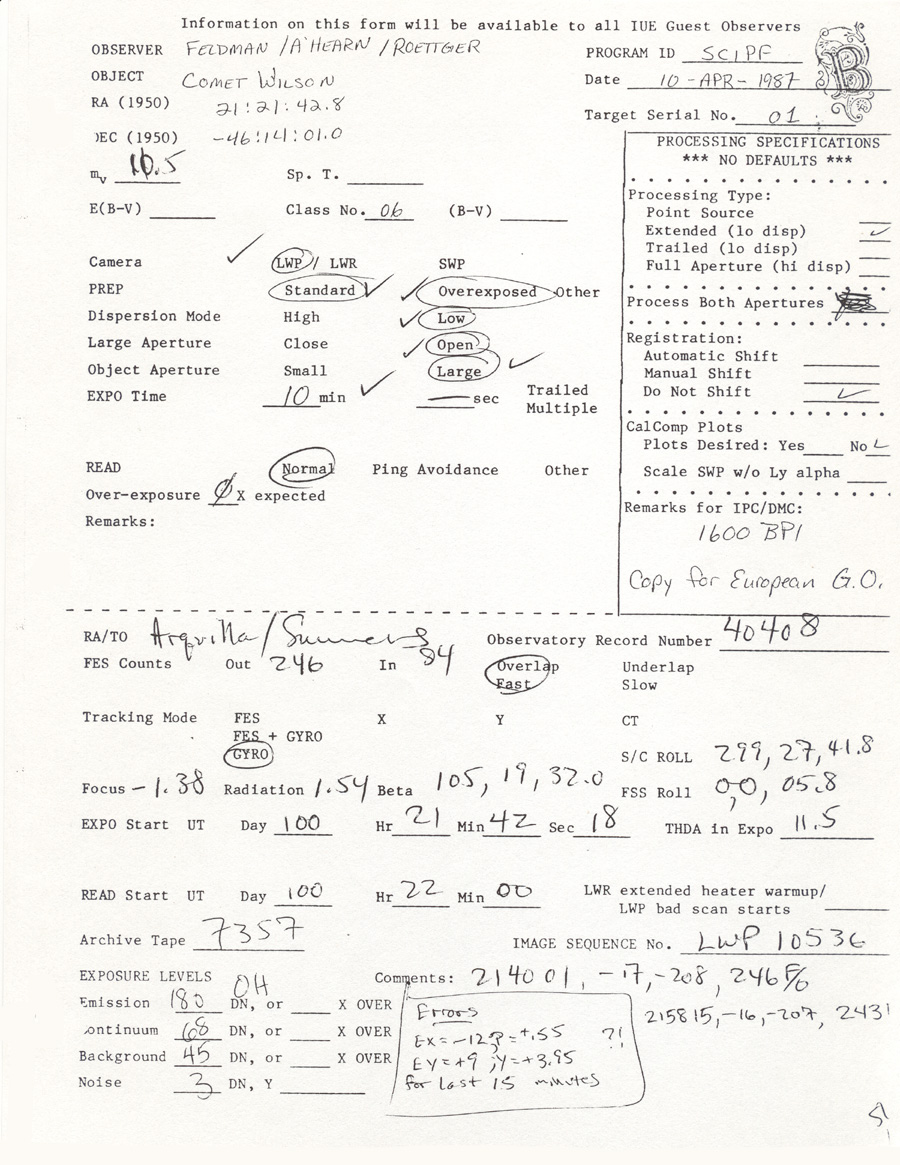 Information on this form will be available to all IUE Guest Observers
OBSERVER FELDMAN /A'HEARN /ROETTGER
PROGRAM ID SCIPF
OBJECT COMET WILSON
Date 10 -APR- 1987
B
RA (1950) 21:21:42.8
Target Serial No. 01
DEC (1950) -46:14:01.0
mv 10.5 Sp. T.
E(B-V) Class No. 06 (B-V)
Camera LWP / LWR SWP
PREP Standard Overexposed Other
Dispersion Mode High Low
Large Aperture Close Open
Object Aperture Small Large
EXPO Time 10 min — sec Trailed
Multiple
READ Normal Ping Avoidance Other
Over-exposure Ø X expected
Remarks:
PROCESSING SPECIFICATIONS
*** NO DEFAULTS ***
Processing Type:
Point Source
Extended (lo disp) ✓
Trailed (lo disp)
Full Aperture (hi disp)
Process Both Apertures
Registration:
Automatic Shift
Manual Shift
Do Not Shift ✓
CalComp Plots
Plots Desired: Yes No ✓
Scale SWP w/o Ly alpha
Remarks for IPC/DMC:
1600 BPI
Copy for European G.O.
RA/TO Arquilla/
Observatory Record Number 40408
FES Counts Out 246 In 84 Overlap Underlap
Fast Slow
Tracking Mode FES X Y CT
FES + GYRO
GYRO
S/C ROLL 299, 27, 41.8
Focus -1.38 Radiation 1.54 Beta 105, 19, 32.0 FSS Roll 00, 05.8
EXPO Start UT Day 100 Hr 21 Min 42 Sec 18 THDA in Expo 11.5
READ Start UT Day 100 Hr 22 Min 00 LWR extended heater warmup/
LWP bad scan starts
Archive Tape 7357 IMAGE SEQUENCE No. LWP 10536
EXPOSURE LEVELS OH Comments: 214001, -17, -208, 246 F/O
Emission 180 DN, or X OVER
215815, -16, -207, 243
Continuum 68 DN, or X OVER
Background 45 DN, or X OVER
Noise 3 DN, Y
Errors
EX = -12 = +.55 ?!
EY = +9 ; y = +3.95
for last 15 minutes